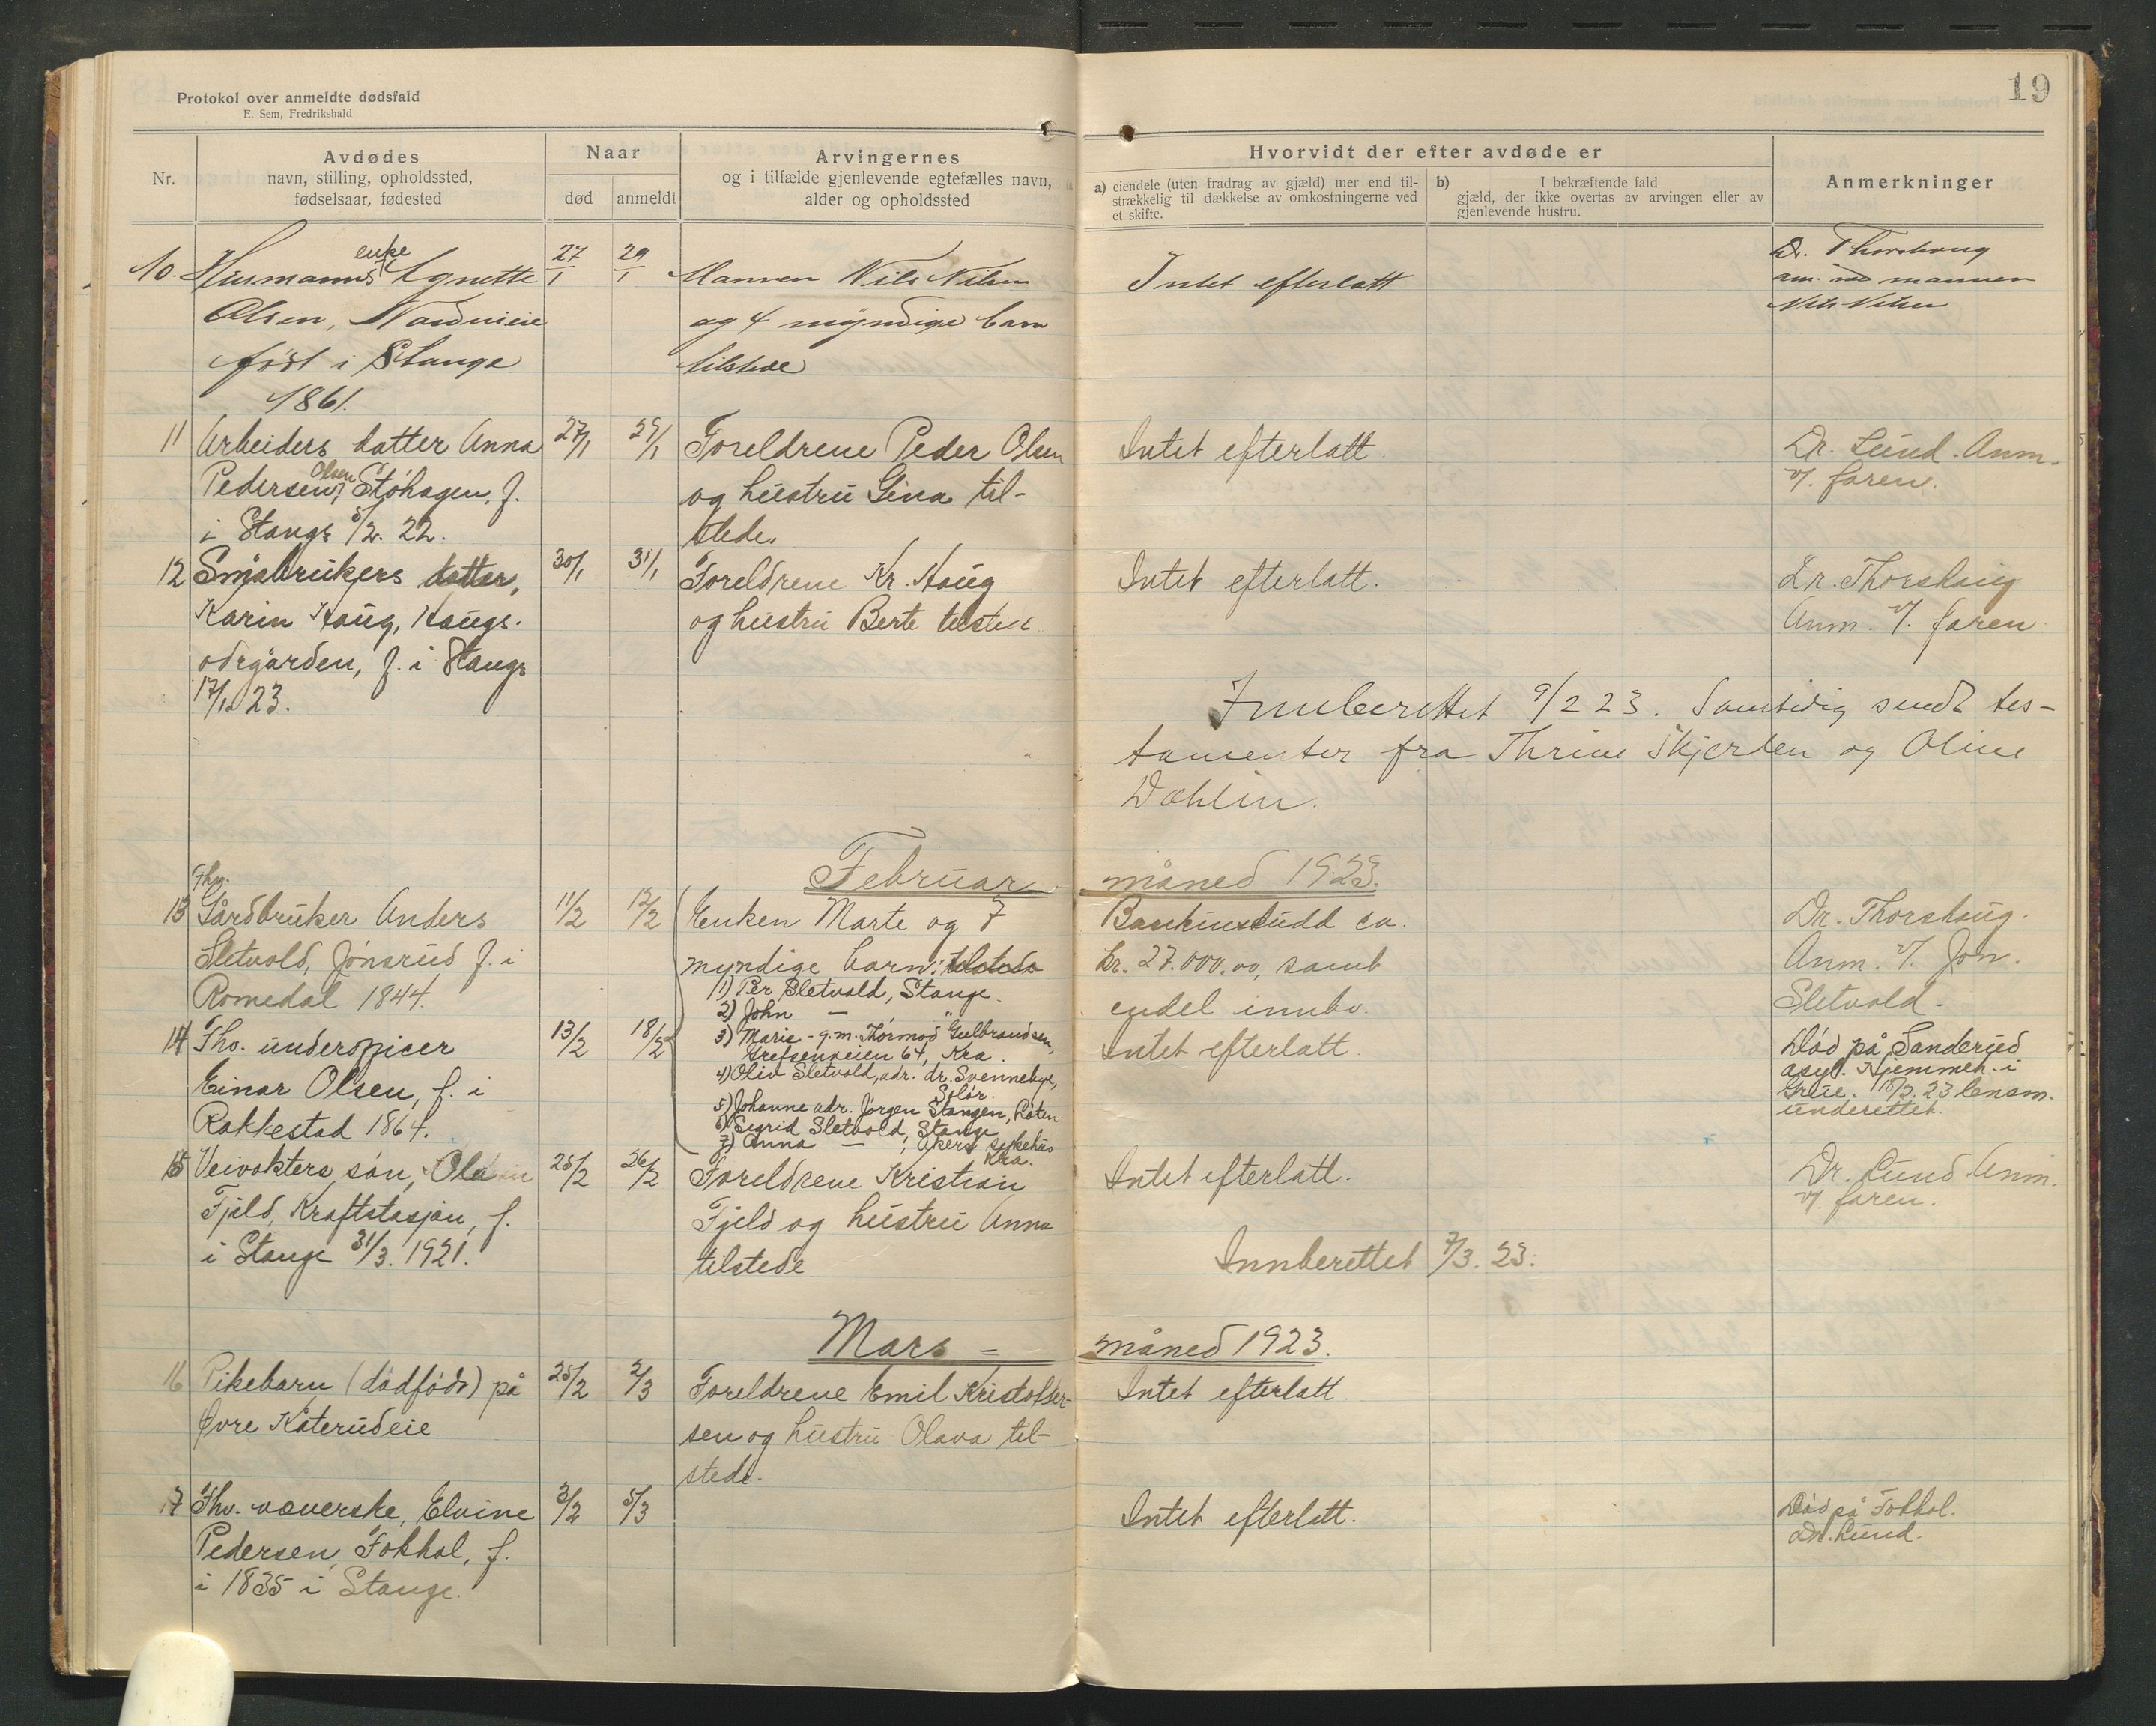 Protokol over anmeldte dødsfald
E. Sem, Fredrikshald
19
Nr.
Avdødes
navn, stilling, opholdssted,
fødselsaar, fødested
Naar
død
anmeldt
Arvingernes
og i tilfælde gjenlevende egtefælles navn,
alder og opholdssted
Hvorvidt der efter avdøde er
a) eiendele (uten fradrag av gjæld) mer end til-
strækkelig til dækkelse av omkostningerne ved
et skifte.
b) I bekræftende fald
gjæld, der ikke overtas av arvingen eller av
gjenlevende hustru.
Anmerkninger
10. Husmanns enke Agnette
Olsen,
født i Stange
1861.
27/1
29/1
Mannen Nils Nilsen
og 4 myndige barn
tilstede
Intet efterlatt
Dr. Thorshaug
anm. ved mannen
Nils Nilsen
11 Arbeiders datter Anna
Pedersen, Olsen Stóhagen, f.
i Stange 5/2. 22.
27/1
29/1
Foreldrene Peder Olsen
og hustru Gina til-
stede.
Intet efterlatt.
Dr. Lund. Anm.
v/. faren.
12 Småbrukers datter,
Karin Haug, Haugs-
ødegården, f. i Stange
17/1. 23.
30/1
31/1
Foreldrene Kr. Haug
og hustru Berte tilstede
Intet efterlatt.
Dr. Thorshaug
Anm. v/. faren
Innberettet 9/2 23. Samtidig sendt tes-
tamenter fra Thrine Skjerden og Oline
Dahlin.
Februar måned 1923.
13 Fhv.
Gårdbruker Anders
Sletvold, Jónsrud f. i
Romedal 1844.
11/2
12/2
Enken Marte og 7
myndige barn: tilstede
1) Per Sletvold, Stange.
2) John — "
3) Marie - g.m. Thormod Gulbrandsen,
Grefsenveien 64, Kra.
4) Oliv Sletvold, adr. dr. Svenneby,
Solór.
5) Johanne adr. Jørgen Stangen, Lóten
6) Sigrid Sletvold, Stange
7) Anna — , Akers sykehus
Kra.
Bankinnskudd ca.
kr. 27.000.00, samt
endel innbo.
Dr. Thorshaug.
Anm. v/. Jon.
Sletvold.
14 Fhv. underofficer
Einar Olsen, f. i
Rakkestad 1864.
13/2
18/2
Intet efterlatt.
Dód på Sanderud
asyl. Hjemmeh. i
Grue. 18/2. 23 lensm.
underettet.
15 Veivokters són, Ola
Fjeld, Kraftstasjon, f.
i Stange 31/3. 1921.
25/2
26/2
Foreldrene Kristian
Fjeld og hustru Anna
tilstede
Intet efterlatt.
Dr. Lund Anm.
v/. faren.
Innberettet 7/3. 23.
Mars = måned 1923.
16 Pikebarn (dódfódt) på
Óvre Kåterudeie
25/2
2/3
Foreldrene Emil Kristoffer-
sen og hustru Olava til-
stede.
Intet efterlatt
17 Fhv. væverske, Elvine
Pedersen, Fokhol, f.
i 1835 i Stange.
3/2
5/3
Intet efterlatt.
Dód på Fokhol.
Dr. Lund.